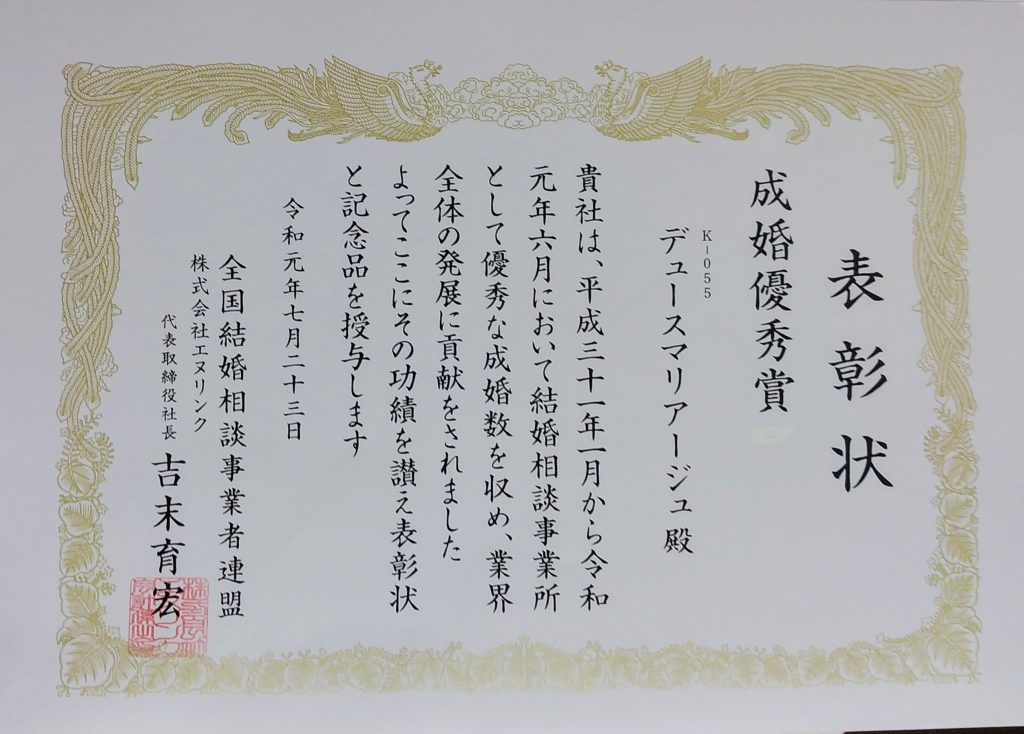 表彰状
成婚優秀賞
K-055
デュースマリアージュ殿
貴社は、平成三十一年一月から令和
元年六月において結婚相談事業所
として優秀な成婚数を収め、業界
全体の発展に貢献をされました
よってここにその功績を讃え表彰状
と記念品を授与します
令和元年七月二十三日
全国結婚相談事業者連盟
株式会社エヌリンク
代表取締役社長 吉末育宏